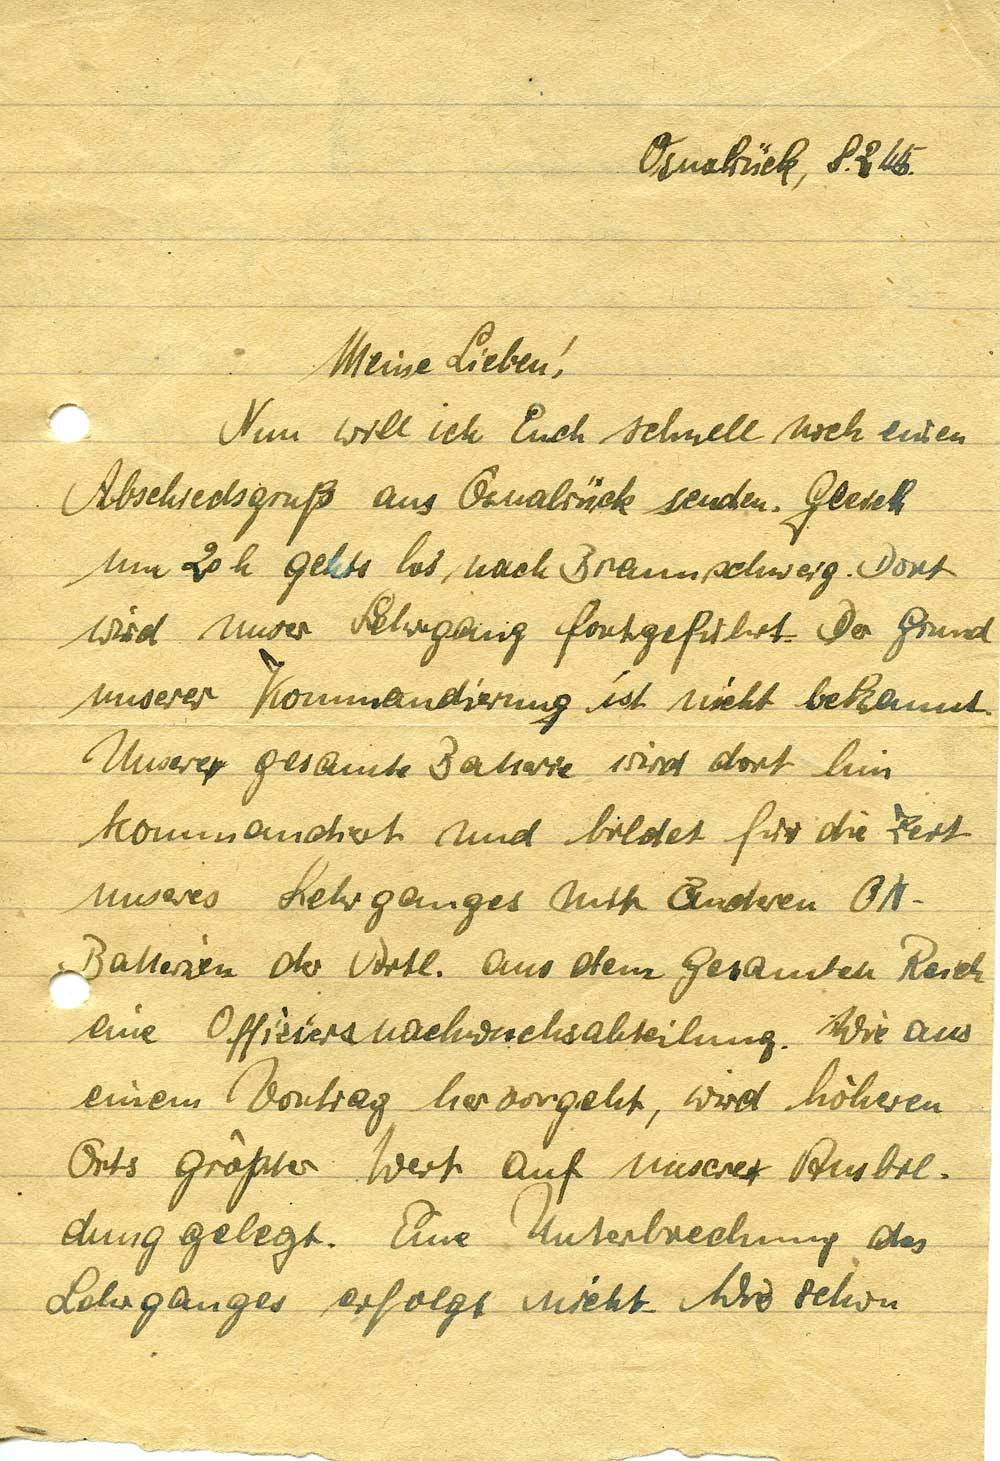 Osnabrück, 8.2.45.
Meine Lieben!
Nun will ich Euch schnell noch einen
Abschiedsgruß aus Osnabrück senden. Gleich
um 20 h gehts los, nach Braunschweig. Dort
wird unser Lehrgang fortgeführt. Der Grund
unserer Kommandierung ist nicht bekannt.
Unsere gesamte Batterie wird dort hin
kommandiert und bildet für die Zeit
unseres Lehrganges mit anderen ON-
Batterien der Artl. aus dem gesamten Reich
eine Offiziersnachwuchsabteilung. Wie aus
einem Vortrag hervorgeht, wird höheren
Orts größter Wert auf unsere Ausbil-
dung gelegt. Eine Unterbrechung des
Lehrganges erfolgt nicht. Wie schon